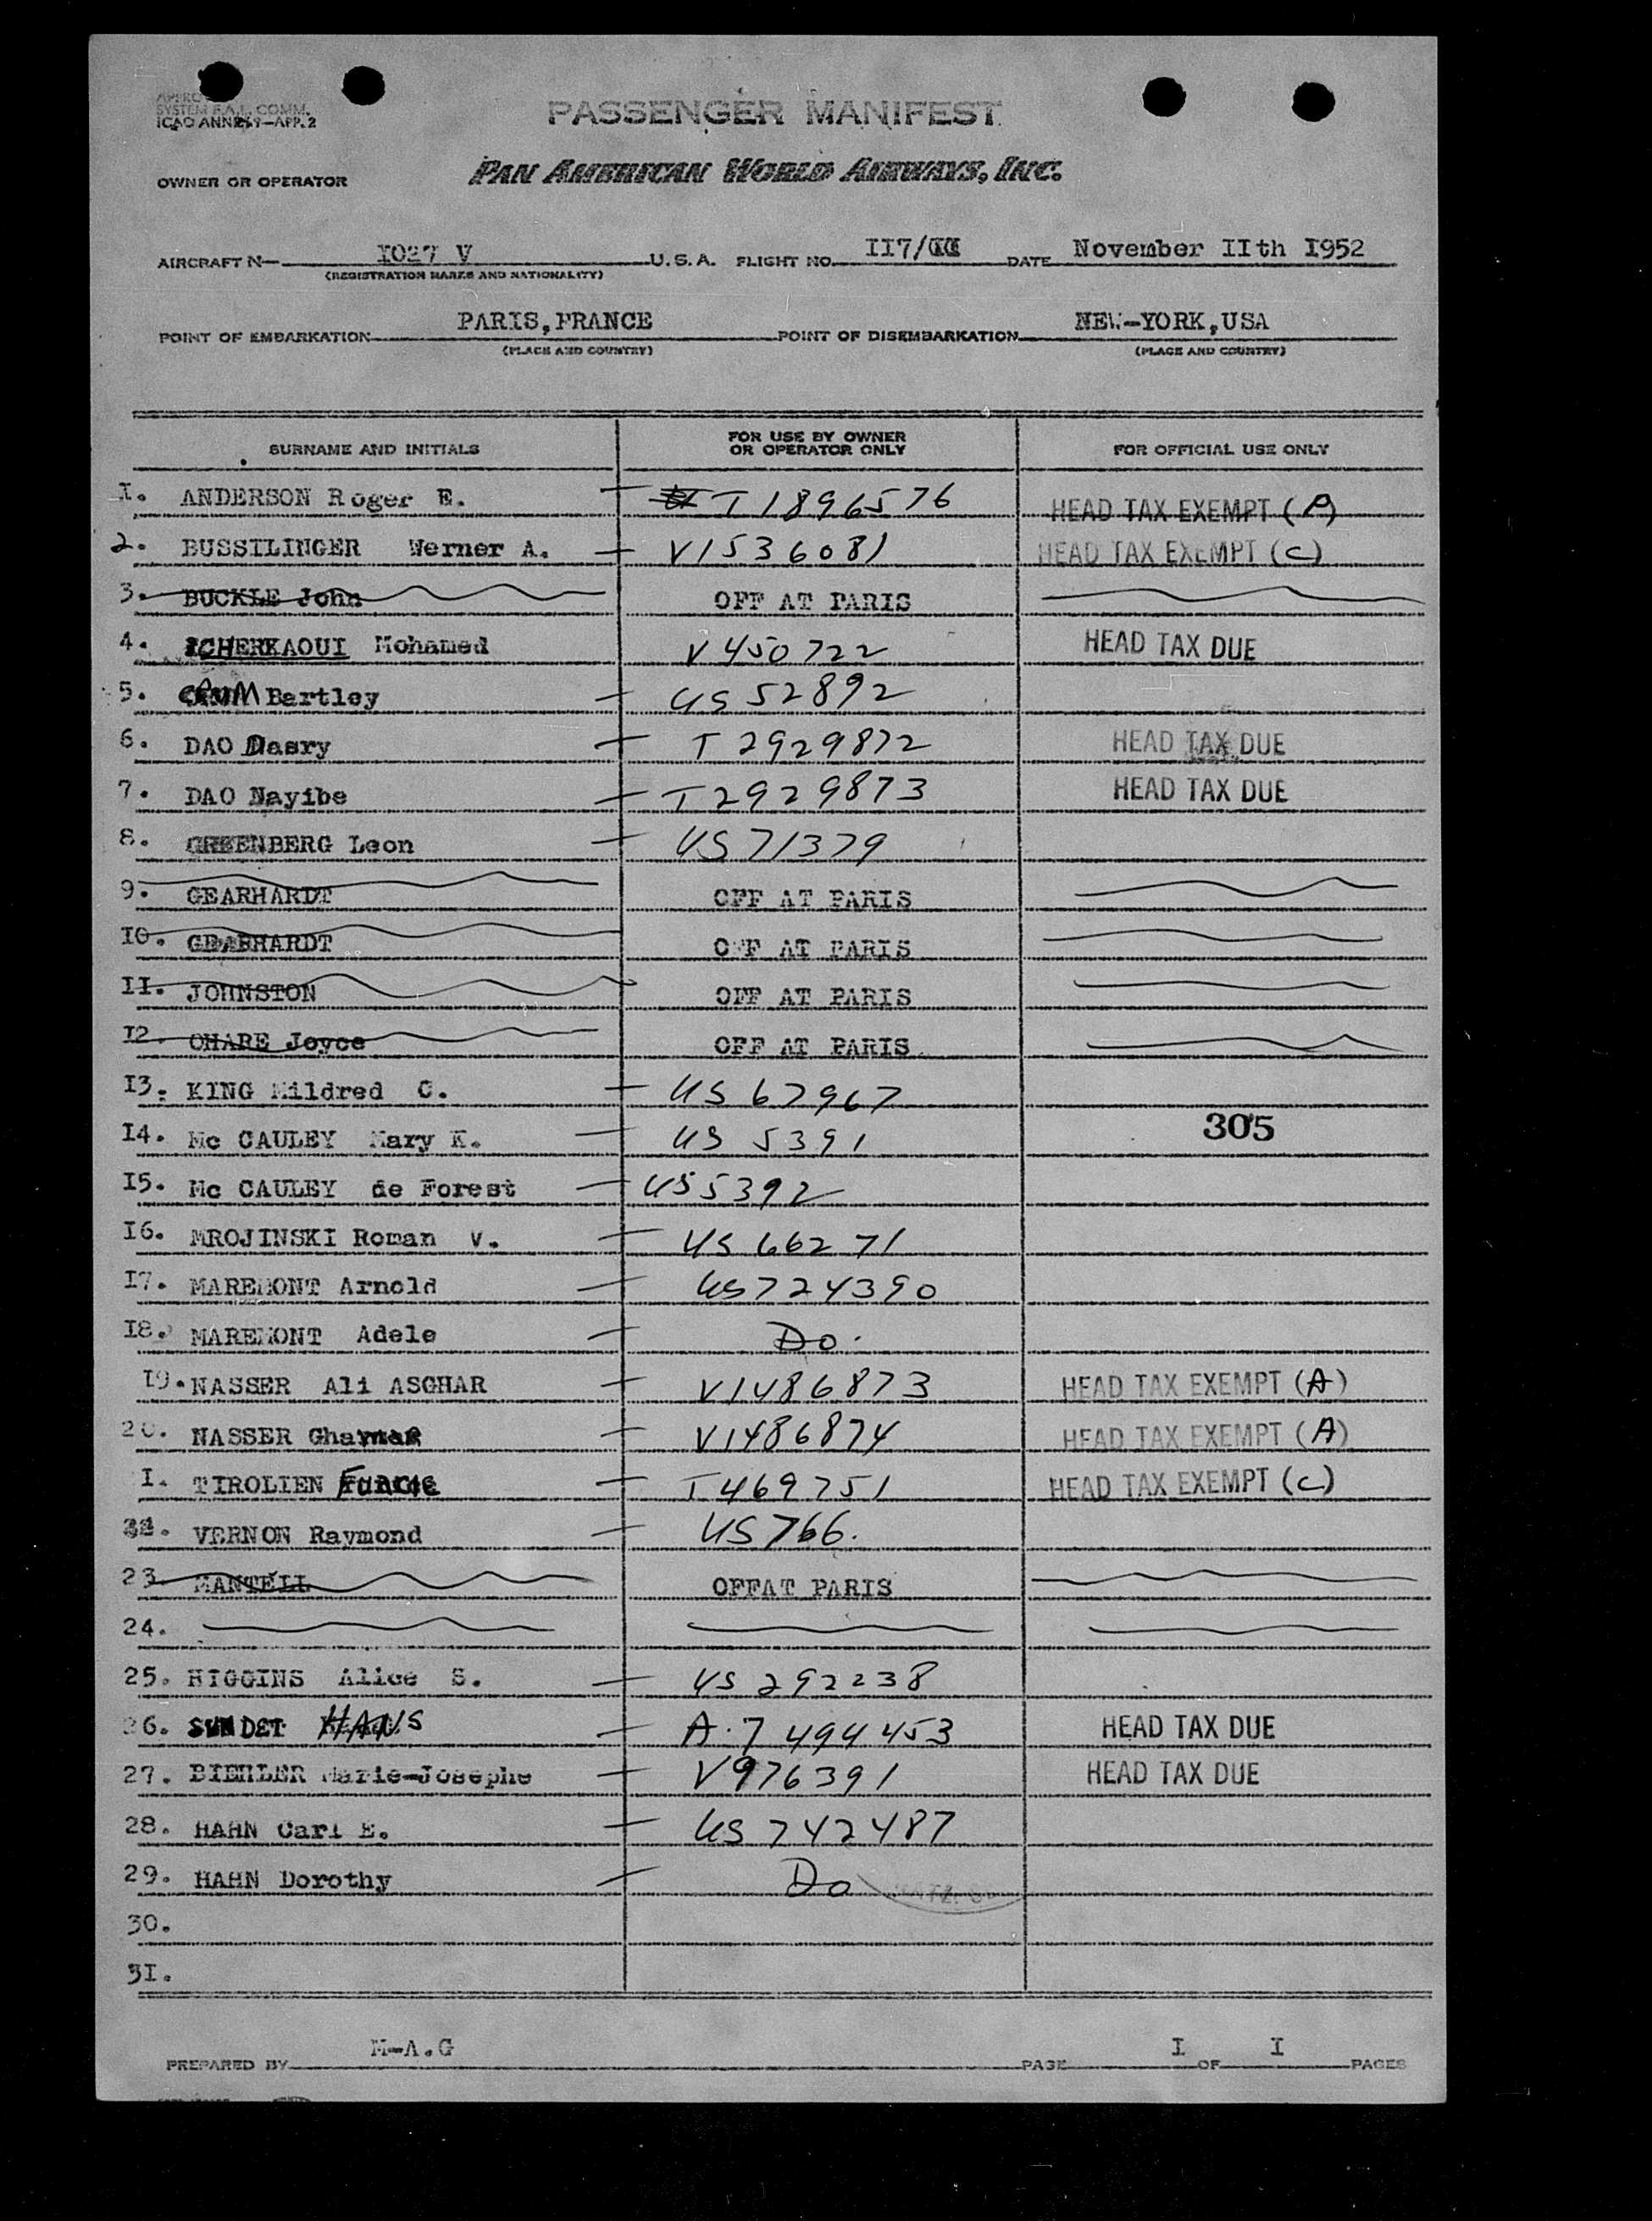 SYSTEM F.A.L. COMM.
PASSENGER MANIFEST
OWNER OR OPERATOR PAN AMERICAN WORLD AIRWAYS, INC.
AIRCRAFT N— 1027 V U.S.A. FLIGHT NO. II7/ DATE November IIth I952
(REGISTRATION MARKS AND NATIONALITY)
POINT OF EMBARKATION PARIS,FRANCE POINT OF DISEMBARKATION NEW-YORK,USA
(PLACE AND COUNTRY) (PLACE AND COUNTRY)
SURNAME AND INITIALS FOR USE BY OWNER OR OPERATOR ONLY FOR OFFICIAL USE ONLY
I. ANDERSON Roger E. — T1896576 HEAD TAX EXEMPT (A)
2. BUSSILINGER Werner A. — V1536081 HEAD TAX EXEMPT (C)
3. BUCKLE John OFF AT PARIS
4. CHERKAOUI Mohamed V450722 HEAD TAX DUE
5. CRUM Bartley — US 52892
6. DAO Nasry — T 2929872 HEAD TAX DUE
7. DAO Nayibe — T2929873 HEAD TAX DUE
8. GREENBERG Leon — US71379
9. GEARHARDT OFF AT PARIS
IO. GEARHARDT OFF AT PARIS
II. JOHNSTON OFF AT PARIS
I2. OHARE Joyce OFF AT PARIS
I3. KING Mildred C. — US 67967
305
I4. Mc CAULEY Mary K. — US 5391
I5. Mc CAULEY de Forest — US5392
I6. MROJINSKI Roman V. — US 66271
I7. MAREMONT Arnold — US724390
I8. MAREMONT Adele — Do.
I9. NASSER Ali ASGHAR — V1486873 HEAD TAX EXEMPT (A)
20. NASSER — V1486874 HEAD TAX EXEMPT (A)
I. TIROLIEN — T469751 HEAD TAX EXEMPT (C)
VERNON Raymond — US766.
23. MANTELL OFFAT PARIS
24.
25. HIGGINS Alice S. — US 292238
26. SUNDET HANS — A.7 494453 HEAD TAX DUE
27. BIEHLER Marie-Josephe — V976391 HEAD TAX DUE
28. HAHN Carl E. — US 742487
29. HAHN Dorothy — Do
30.
3I.
PREPARED BY M-A.G PAGE I OF I PAGES